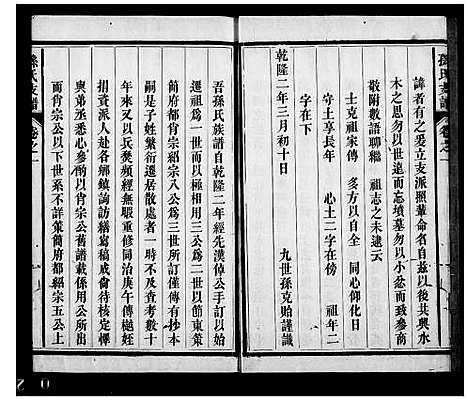 孫氏支譜
卷之一
諱者有之爰立支派照輩命名自茲以後其共興水
木之思勿以世遠而忘墳墓勿以小忿而致參商
敬附數語聊繼　祖志之未逮云
士克祖家傳　多方以自全　同心仰化日
守土享長年　心土二字在傍　祖年二
字在下
乾隆二年三月初十日　九世孫克始謹識
吾孫氏族譜自乾隆二年經先漢倬公手訂以始
遷祖爲一世而以極相用三公爲二世以節東策
簡府都宵宗紹宗八公爲三世所訂僅傳有抄本
於是子姓繁衍遷居散處者一時不及查考數十
年來又以兵燹頻經無暇重修同治庚午傳樾姪
捐資派人赴各鄉鎮詢訪繕寫稿成尙待核定懌
與弟丞悉心參酌以肖宗公舊譜載係用公所出
而肖宗公以下世系不詳策簡府都紹宗五公上
孫氏支譜
卷之一